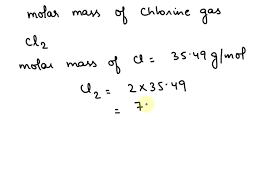 molar mass of Chlorine gas
Cl2
molar mass of Cl = 35.49 g/mol
Cl2 = 2 × 35.49
= 7.